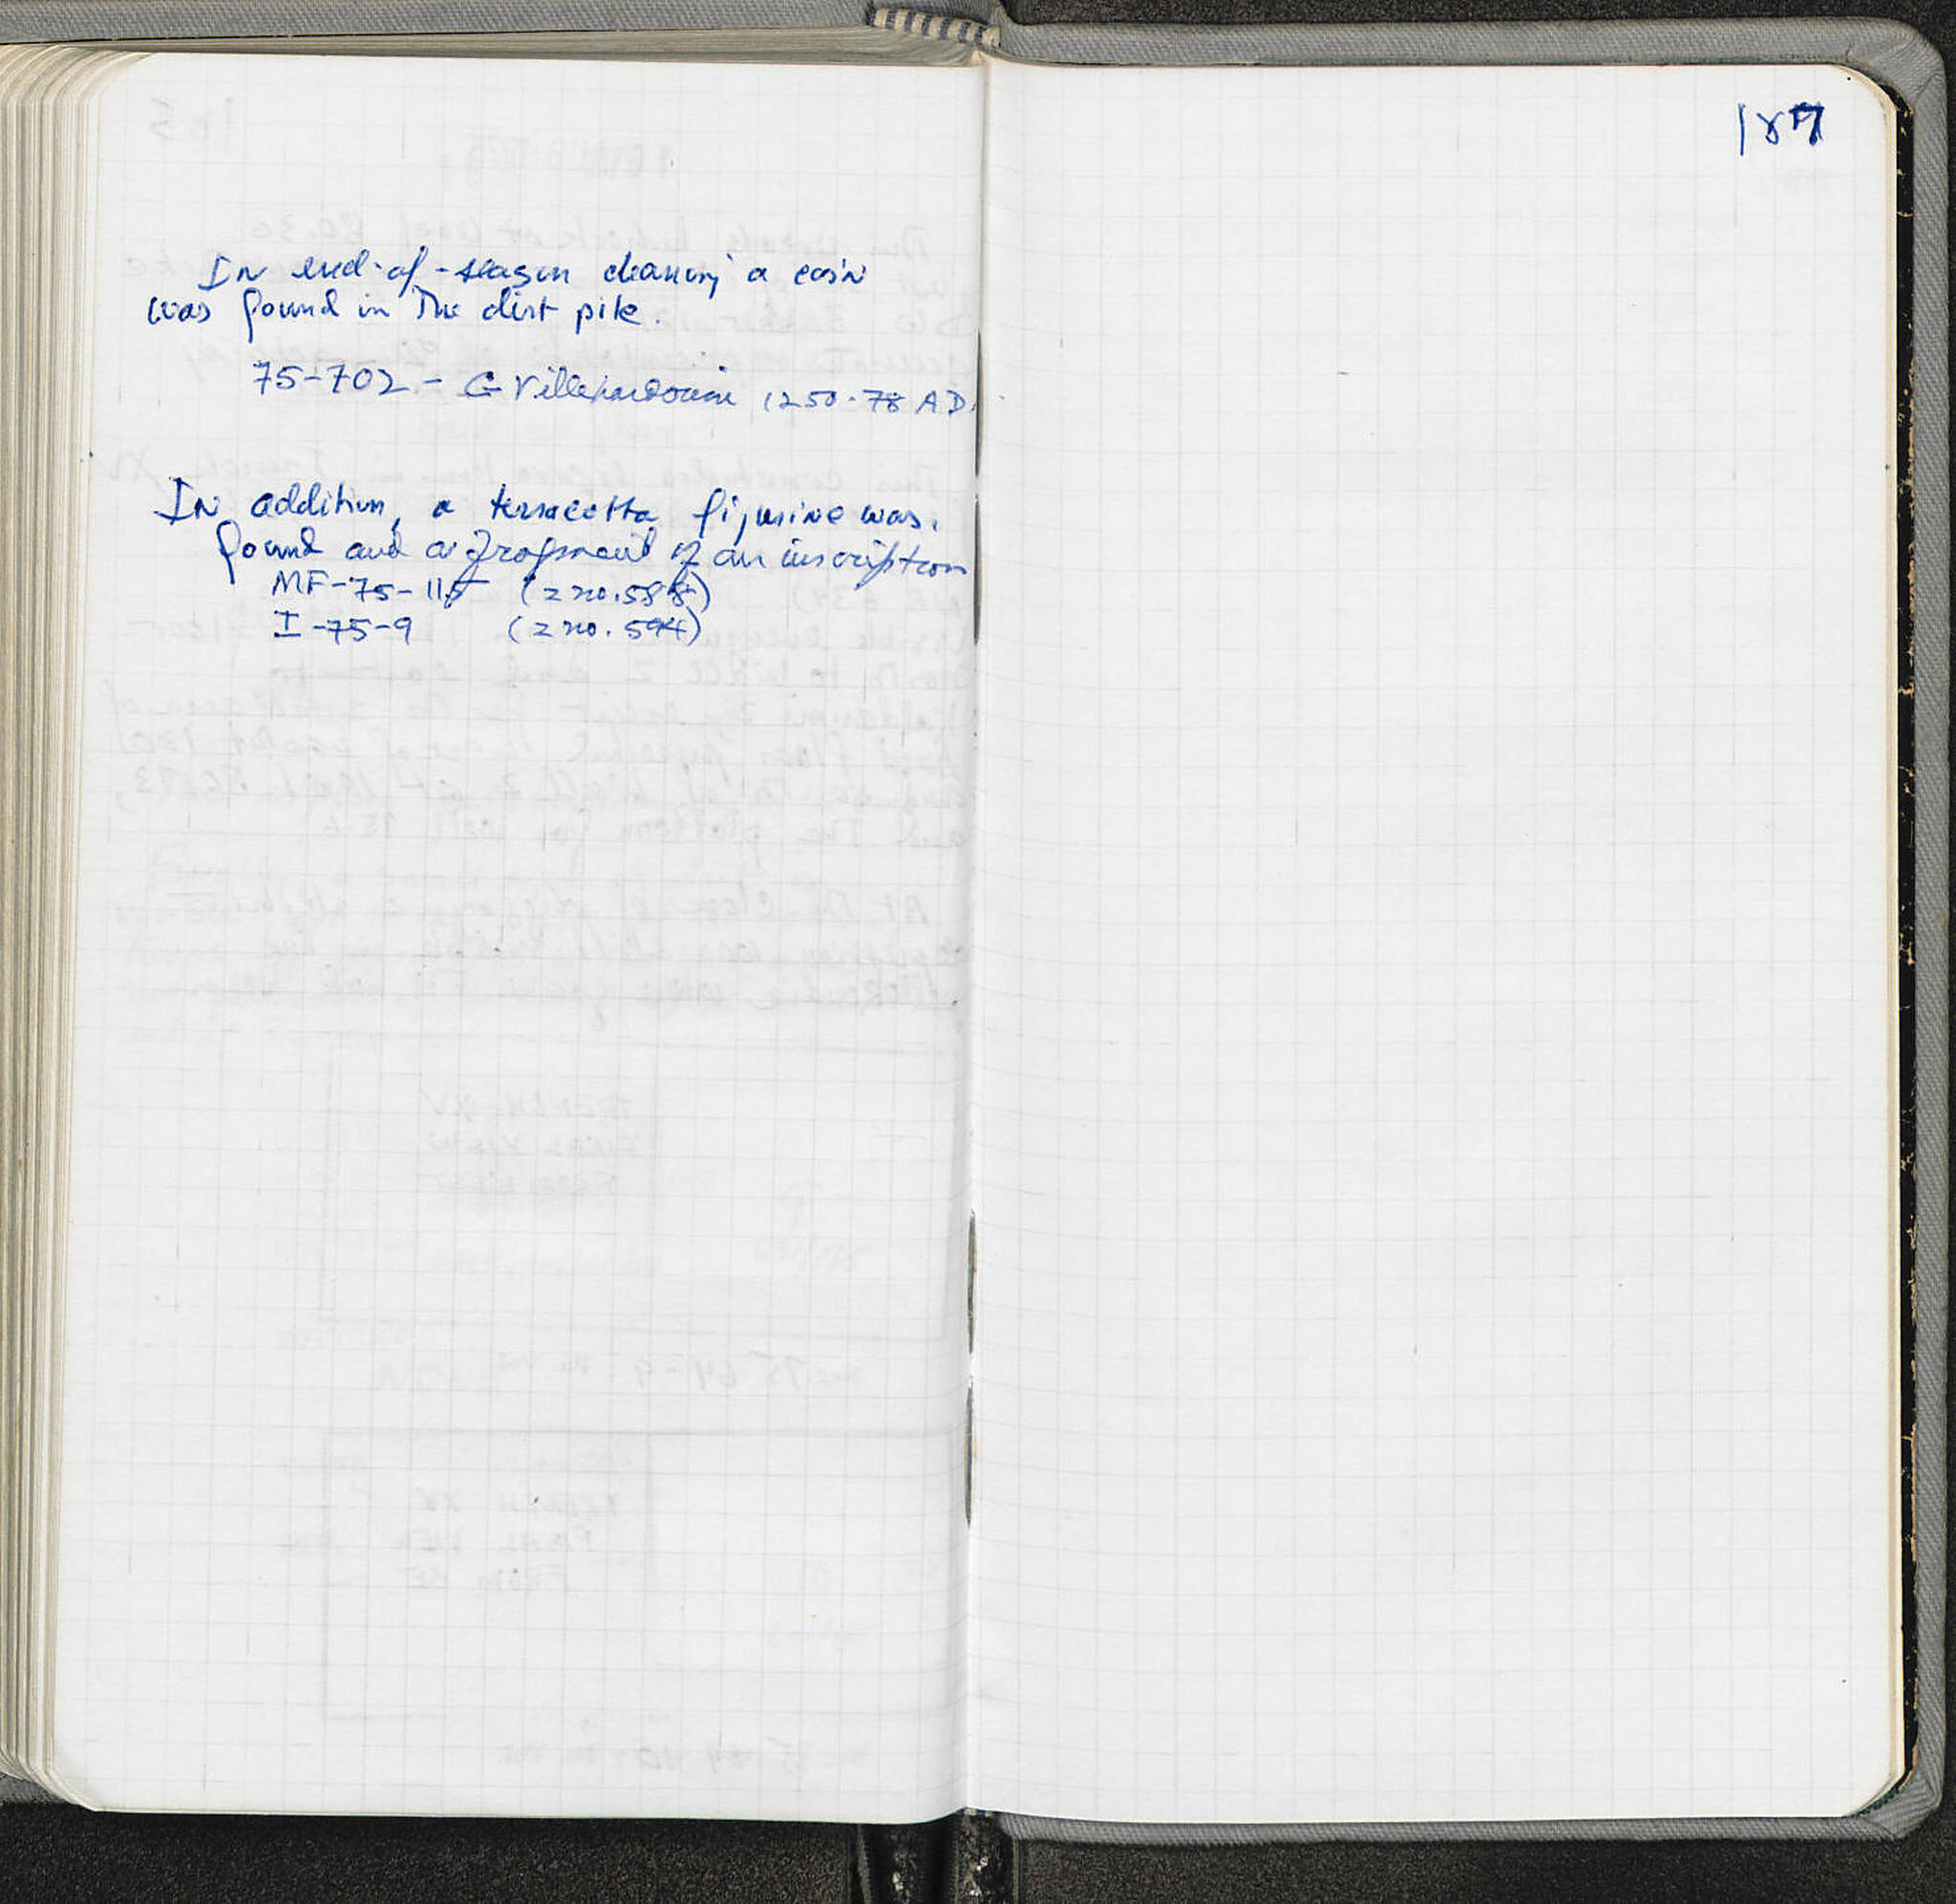 In end-of-season cleaning a coin
was found in the dirt pile.
75-702 - G Villehardouin 1250-78 AD.
In addition, a terracotta figurine was
found and a fragment of an inscription
MF-75-115 (2 no. 588)
I-75-9 (2 no. 594)
187